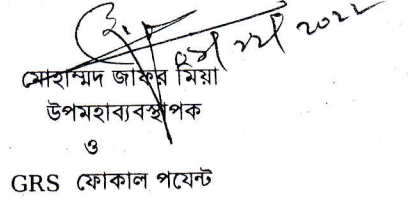 মোহাম্মদ জাফর মিয়া
উপমহাব্যবস্থাপক
ও
GRS ফোকাল পয়েন্ট